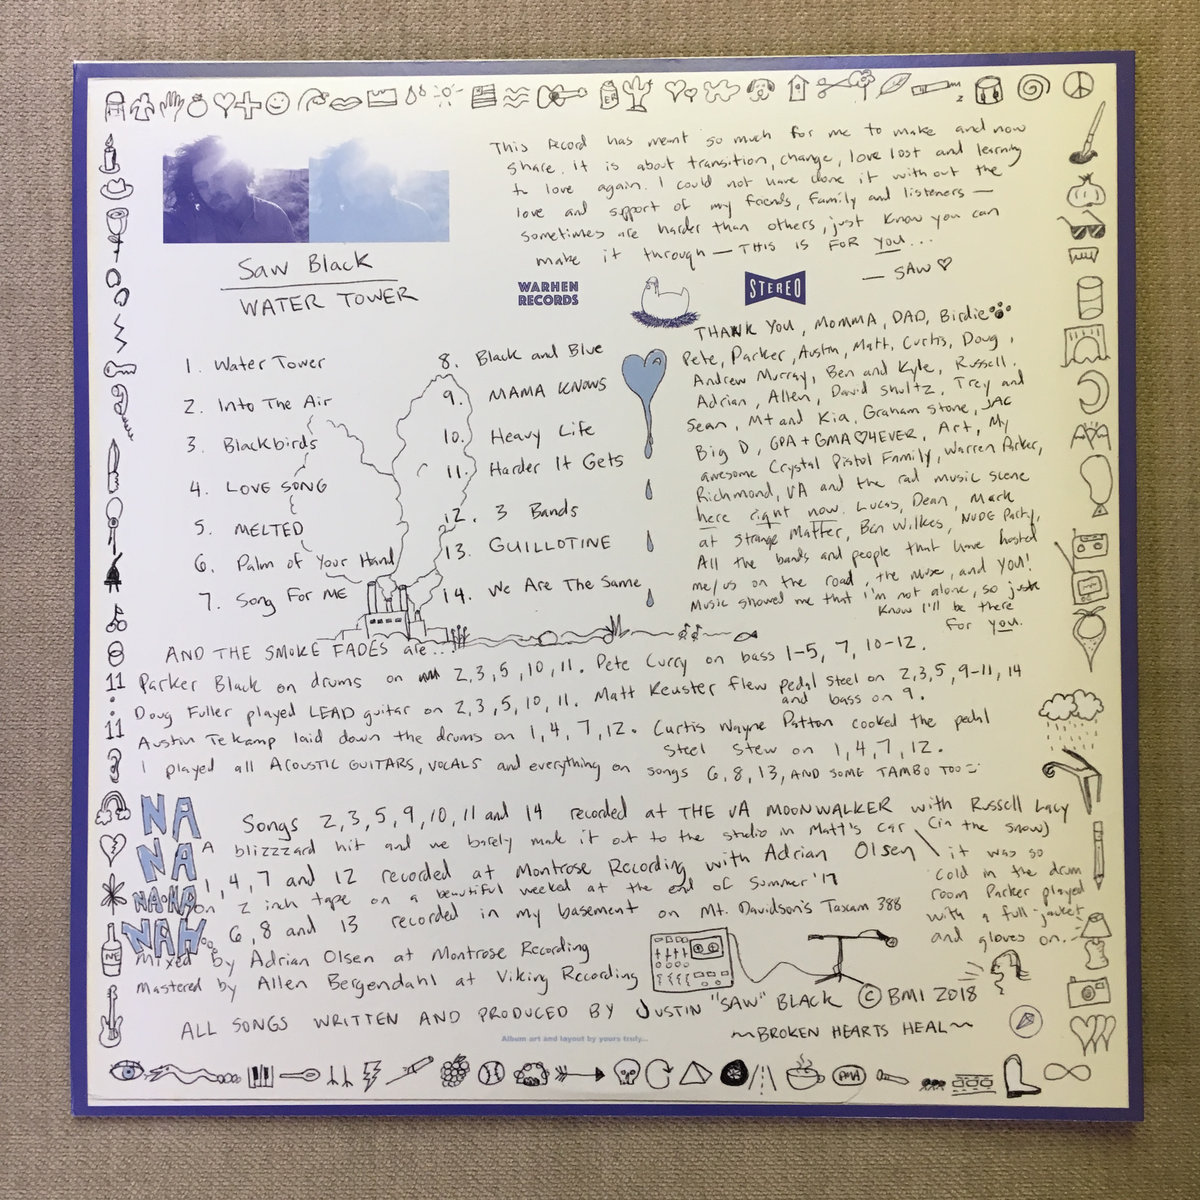 This record has meant so much for me to make and now
share. It is about transition, change, love lost and learning
to love again. I could not have done it without the
love and spport of my friends, family and listeners —
sometimes are harder than others, just know you can
make it through — THIS IS FOR you...
— SAW ♡
Saw Black
WATER TOWER
WARHEN
RECORDS
STEREO
1. Water Tower
2. Into The Air
3. Blackbirds
4. LOVE SONG
5. MELTED
6. Palm of Your Hand
7. Song For ME
8. Black and Blue
9. MAMA KNOWS
10. Heavy Life
11. Harder It Gets
12. 3 Bands
13. GUILLOTINE
14. We Are The Same
THANK YOU, MOMMA, DAD, Birdie
Pete, Parker, Austin, Matt, Curtis, Doug,
Andrew Murray, Ben and Kyle, Russell.
Adrian, Allen, David Shultz, Trey and
Sean, Mt and Kia, Graham Stone, JAC
Big D, GPA + GMA ♡ 4EVER, Art, My
awesome Crystal Pistol Family, Warren Parker,
Richmond, VA and the rad music scene
here right now. Lucas, Dean, Mark
at Strange Matter, Ben Wilkes, NUDE Party,
All the bands and people that have hosted
me/us on the road, the muse, and YOU!
Music showed me that I'm not alone, so just
know I'll be there
for you.
AND THE SMOKE FADES are...
Parker Black on drums on 2,3,5,10,11. Pete Curry on bass 1-5, 7, 10-12.
Doug Fuller played LEAD guitar on 2,3,5,10,11. Matt Keuster flew pedal steel on 2,3,5,9-11,14
and bass on 9.
Austin Tekamp laid down the drums on 1,4,7,12. Curtis Wayne Patton cooked the pedal
steel stew on 1,4,7,12.
I played all ACOUSTIC GUITARS, VOCALS and everything on songs 6,8,13, AND SOME TAMBO TOO
11
11
NA
NA
NA·NA
NAH
Songs 2,3,5,9,10,11 and 14 recoded at THE VA MOONWALKER with Russell Lacy
A blizzzard hit and we barely made it out to the studio in Matt's car (in the snow)
it was so
cold in the drum
room Parker played
with a full jacket
and gloves on.
1,4,7 and 12 recorded at Montrose Recording with Adrian Olsen
on 2 inch tape on a beautiful weeked at the end of Summer '17
6,8 and 13 recorded in my basement on Mt. Davidson's Tascam 388
Mixed by Adrian Olsen at Montrose Recording
Mastered by Allen Bergendahl at Viking Recording
ALL SONGS WRITTEN AND PRODUCED BY JUSTIN "SAW" BLACK © BMI 2018
~BROKEN HEARTS HEAL~
Album art and layout by yours truly...
PMA